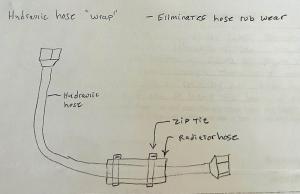 Hydraulic hose "wrap" - Eliminates hose rub wear
Hydraulic
hose
Zip Tie
Radiator hose